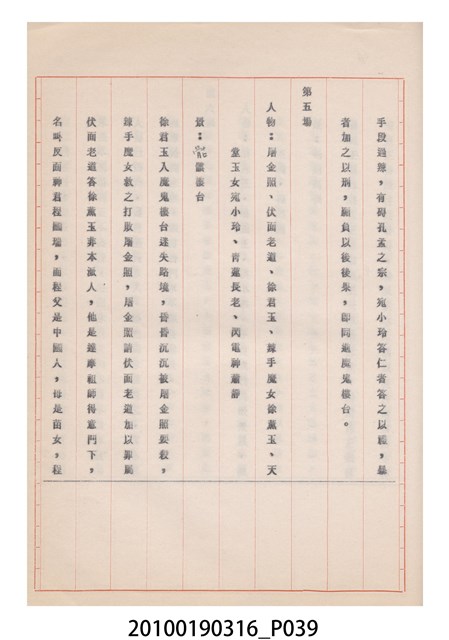 手段過辣，有碍孔孟之宗，宛小玲答仁者答之以禮，暴
者加之以刑，願負以後後果，卽同進魔鬼樓台。
第五場
人物：屠金照、伏面老道、徐君玉、辣手魔女徐薰玉、天
堂玉女宛小玲、靑蓮長老、閃電神蕭靜
景：魔鬼樓台
徐君玉入魔鬼樓台迷失路境，昏昏沉沉被屠金照要殺，
辣手魔女救之打敗屠金照，屠金照請伏面老道加以罪萬
伏面老道答徐薰玉非本派人，他是達摩祖師得意門下，
名叫反面神君程國瑞，面程父是中國人，母是苗女，程
20100190316_P039